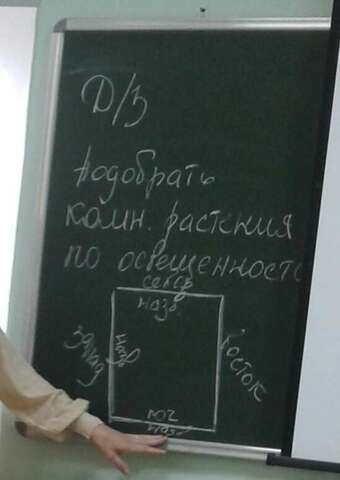 Д/З
подобрать
комн. растения
по освещенност
север
назв
Запад
назв
Восток
юг
наз